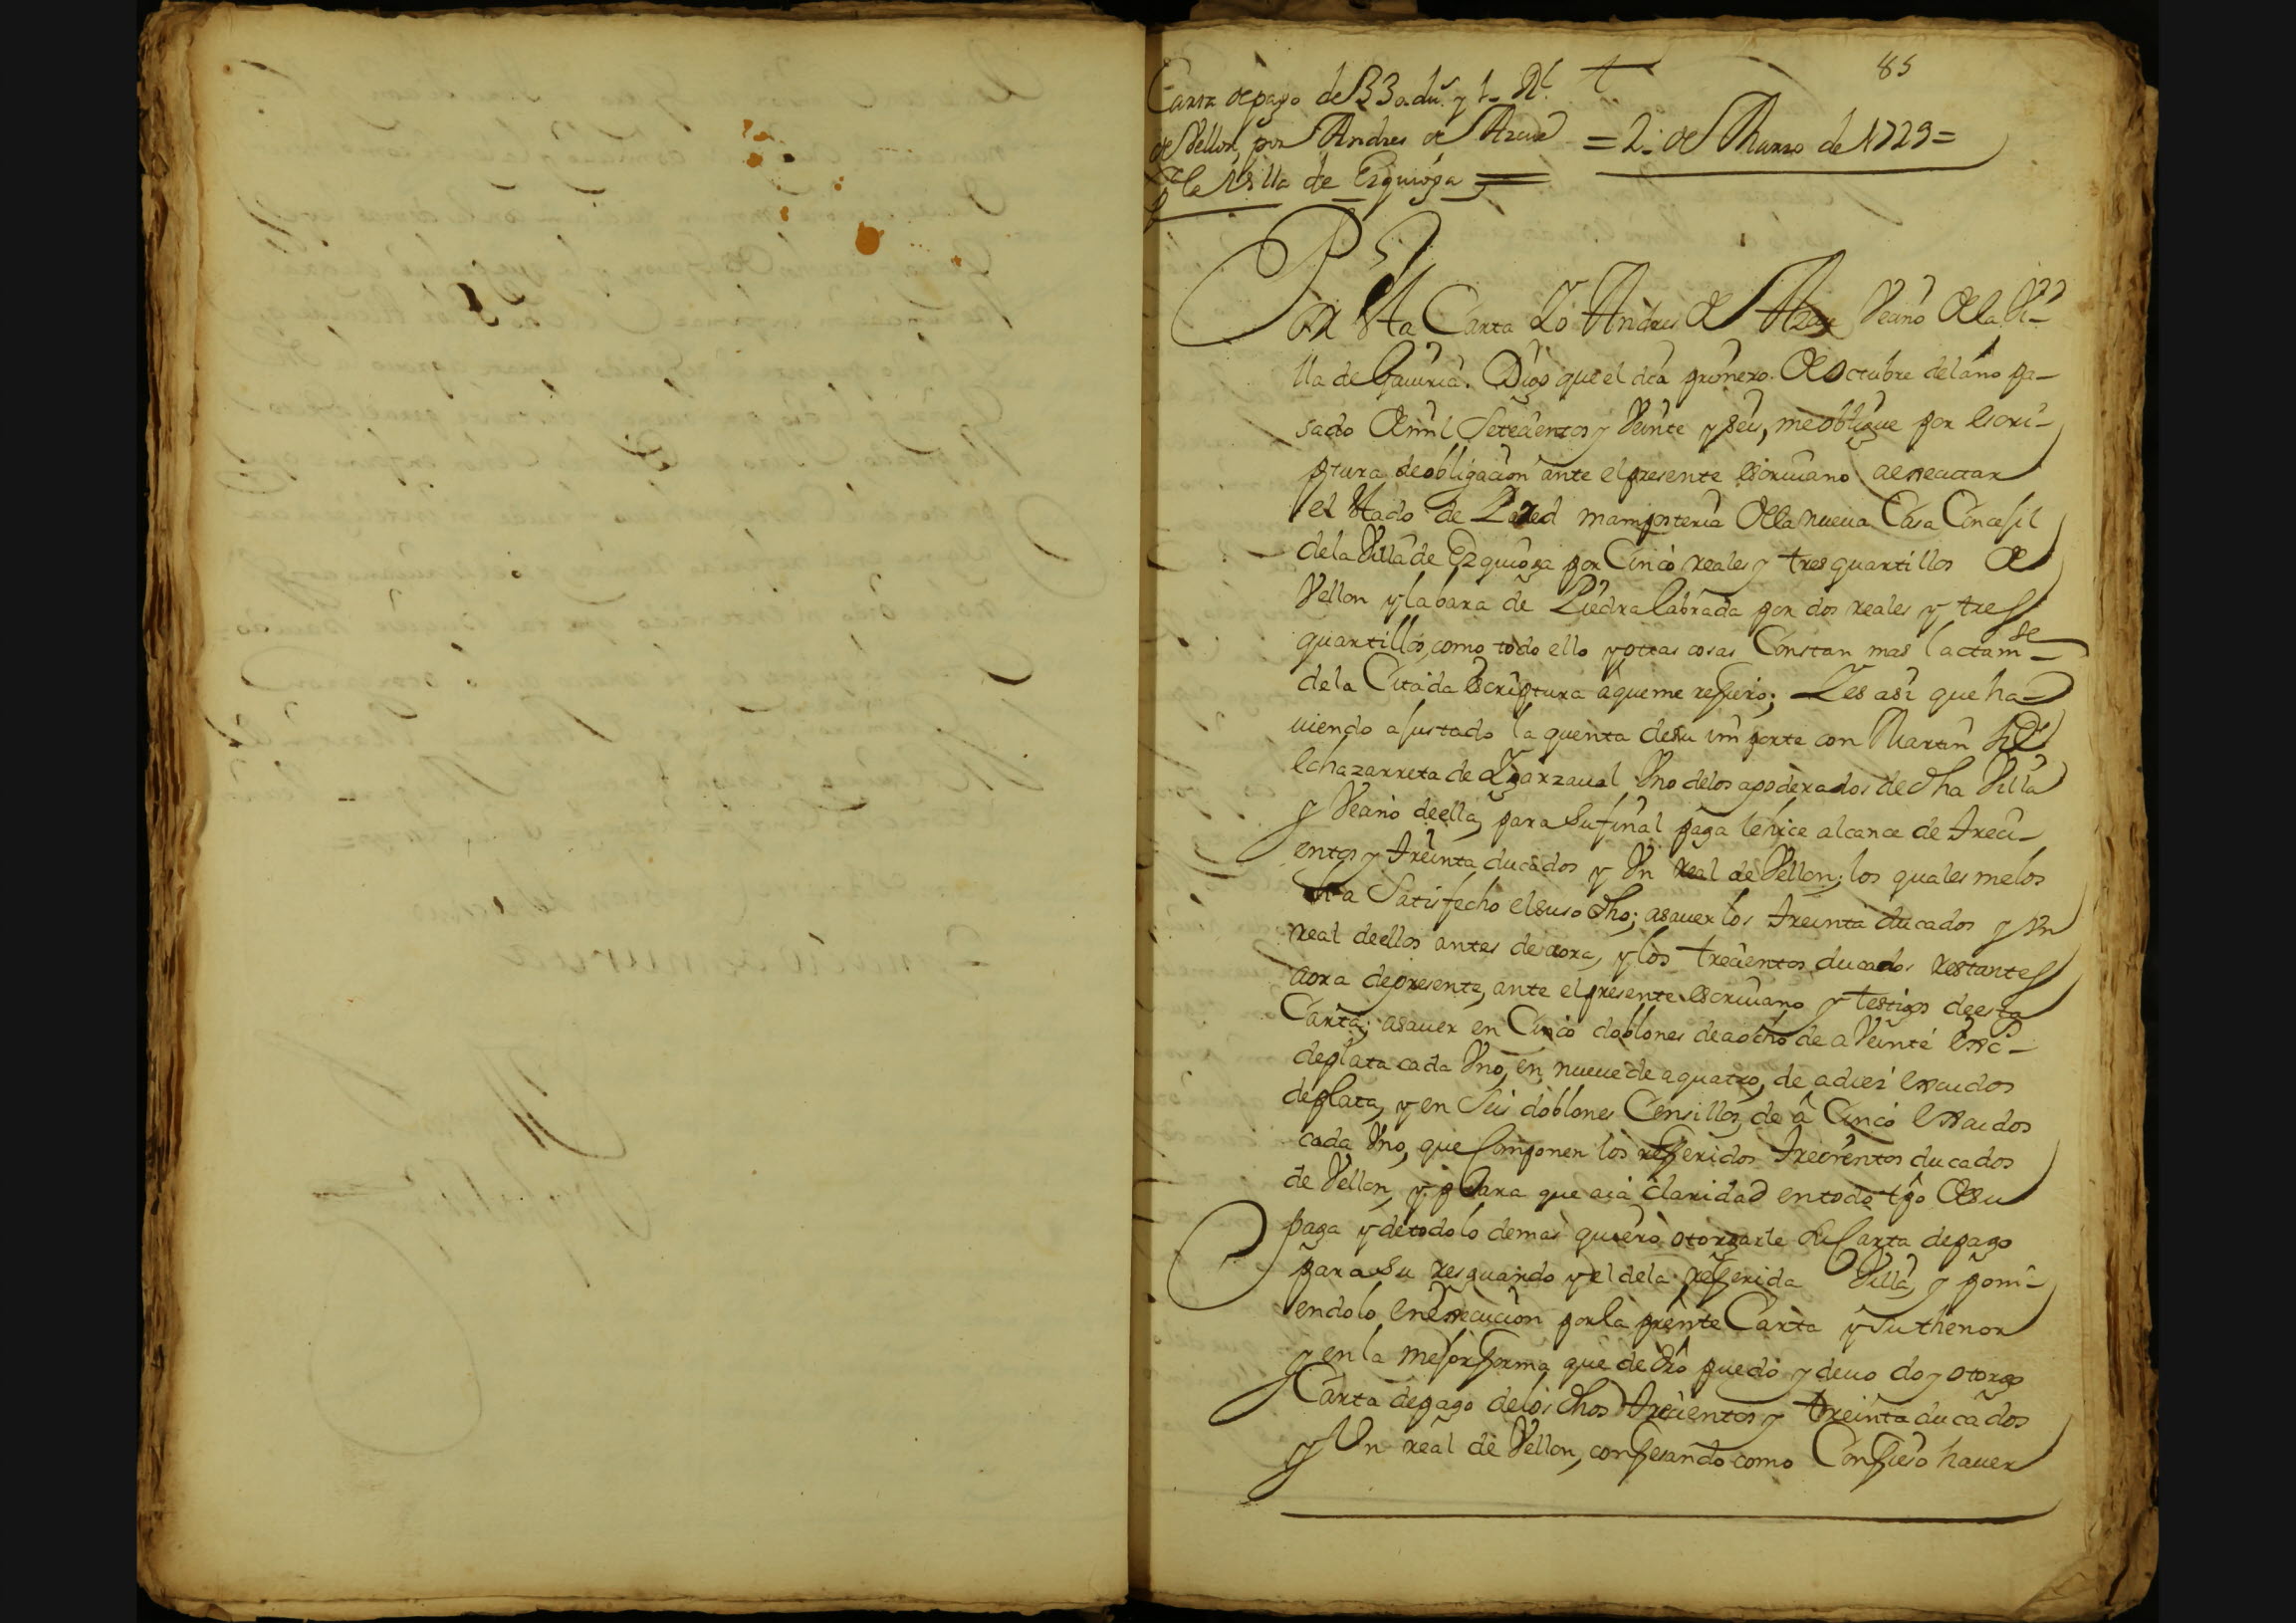 85
Carta de pago de 330 du.s y 1 Rl.
de Vellon, por Andres de Azcue
= 2 de Marzo de 1729 =
la Villa de Ezquioga
Por esta Carta Yo Andres de Azcue Vecino de la Vi-
lla de Gauiria. Digo que el dia primero de Octubre del año pa-
sado de mil Setecientos y Veinte y seis, me obligue por escri-
ptura de obligacion ante el presente escriuano a executar
el estado de Pared mamposteria de la nueua Casa Concejil
de la Villa de Ezquioga por Cinco reales y tres quartillos de
Vellon y la bara de Piedra labrada por dos reales y tres
quartillos, como todo ello y otras cosas Constan mas lactam.te
de la Citada escriptura a que me refiero; Y es asi que ha-
uiendo ajustado la quenta de su importe con Martin de
echazarreta de Ygarzaual Vno de los apoderados de dha Villa
y Vecino de ella, para su final paga le hice alcance de treci-
entos y treinta ducados y Vn real de Vellon; los quales me los
ha Satisfecho el suso dho; asauer los treinta ducados y vn
real de ellos antes de aora, y los trecientos ducados restantes
aora de presente, ante el presente escriuano y testigos de esta
Carta; asauer en Cinco doblones de a ocho de a Veinte
de plata cada Vno, en nueue de a quatro, de a diez escudos
de plata, y en Seis doblones Sensillos, de â Cinco escudos
cada Vno, que Componen los referidos trecientos ducados
de Vellon, y para que aia claridad en todo tpo de su
paga y de todo lo demas quiero otorgarle su Carta de pago
para su resguardo y el de la referida Villa, y poni-
endolo en execucion por la prente Carta y su thenor
y en la mejor forma que de dro puedo y deuo doy otorgo
Carta de pago de los dhos trecientos y treinta ducados
y Vn real de Vellon, confesando como Confieso hauer